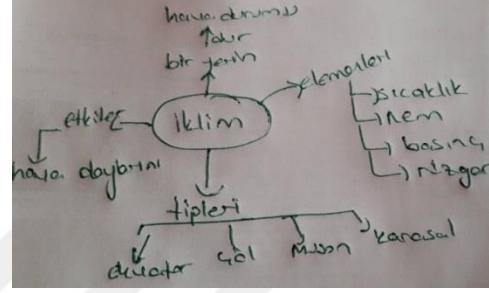 hava durumu
bir yerin
elemanları
sıcaklık
nem
basınç
rüzgar
iklim
etkiler
hava
tipleri
ekvator
çöl
muson
karasal